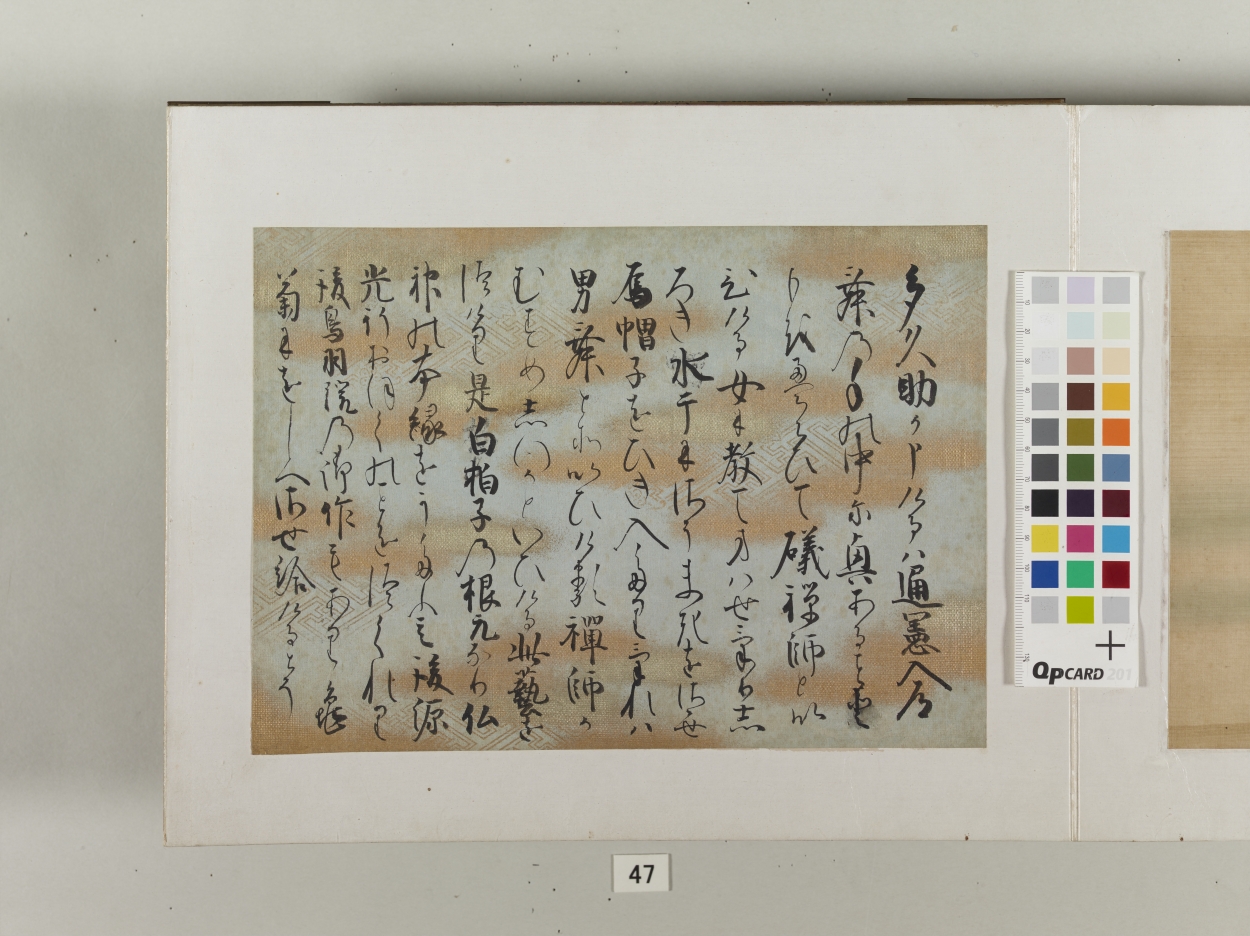 多久助か申けるは通憲入道
舞の手の中に興ある事と
もをえらひて磯禅師とい
ひける女に教てまはせけりし
ろき水干にさうまきをさせ
烏帽子をひき入たりけれは
男舞とそいひける禅師か
むすめしつかといひける此藝を
つけり是白拍子の根元なり仏
神の本縁をうたふ其後源
光行おほくのことをつくれり
後鳥羽院の御作もあり亀
菊にをしへさせ給けるとそ
47
QPCARD 201